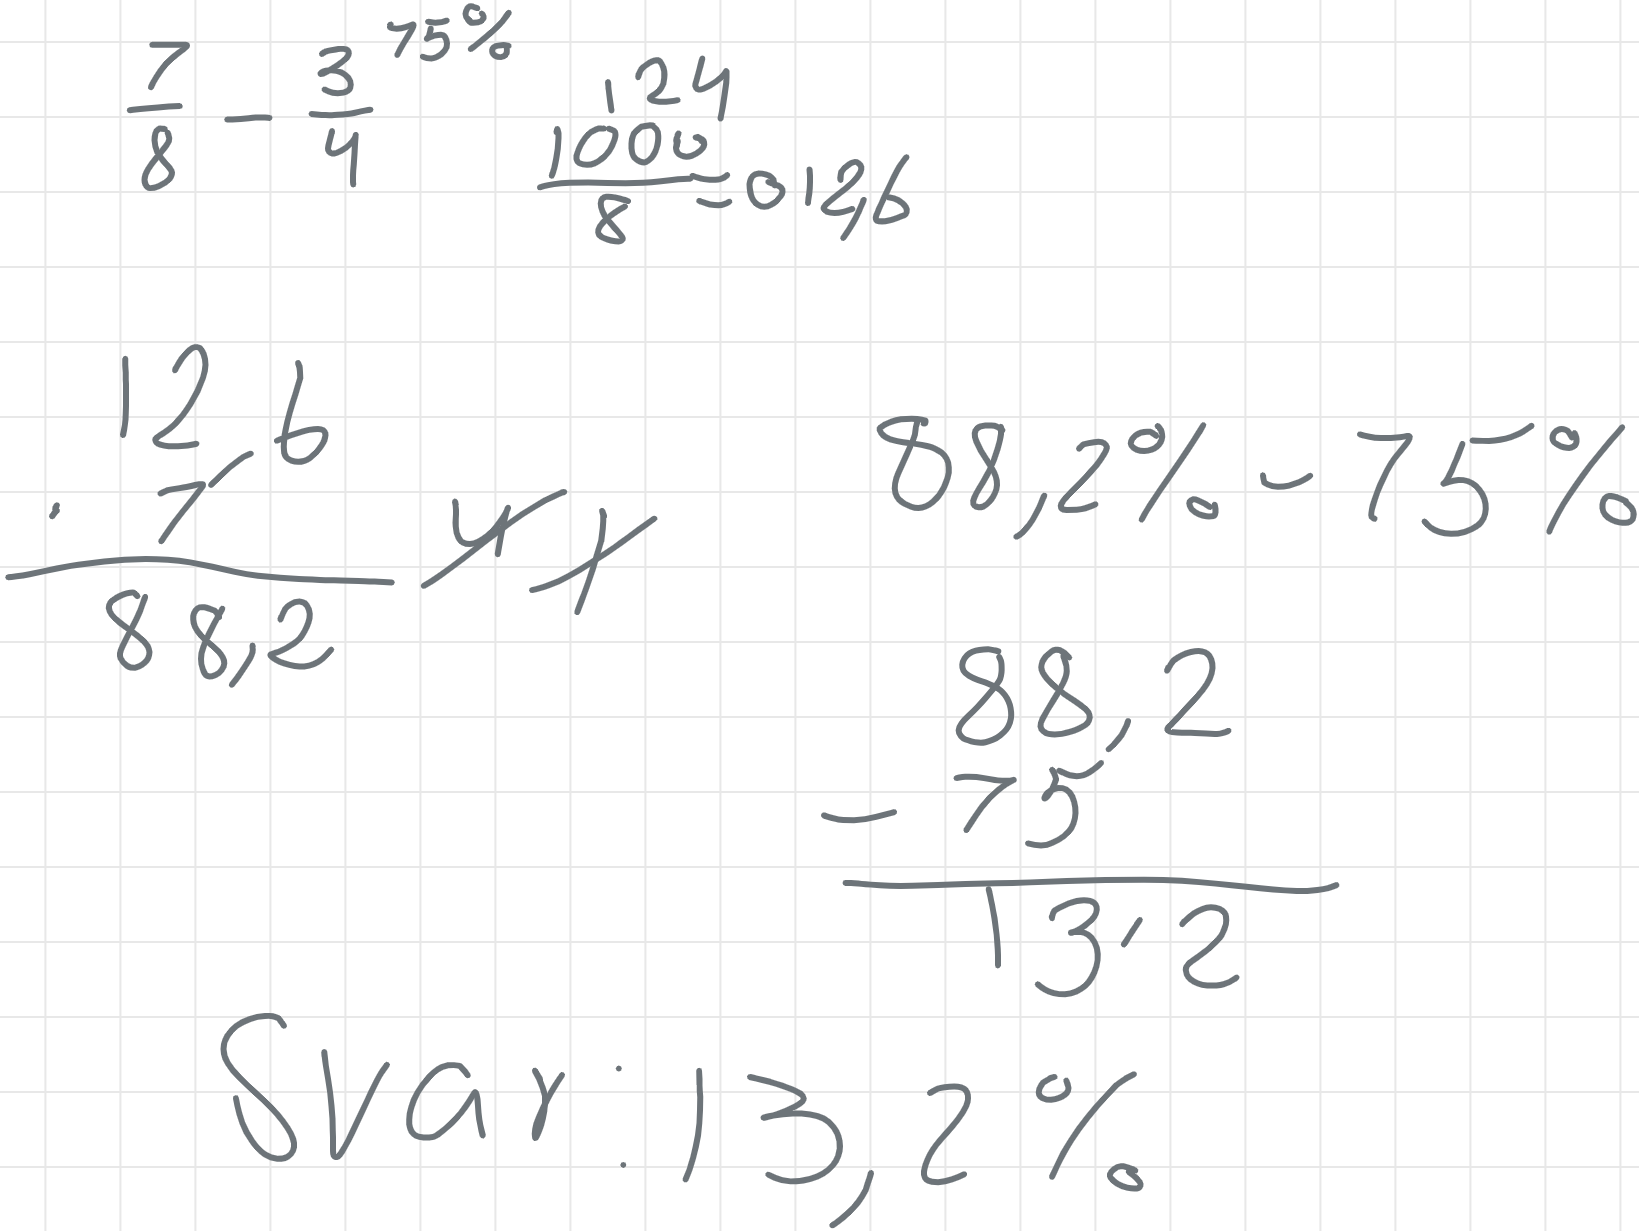 7/8 - 3/4 75%
124
1000/8 = 012,6
12,6
· 7
88,2
88,2% - 75%
88,2
- 75
13,2
Svar: 13,2%